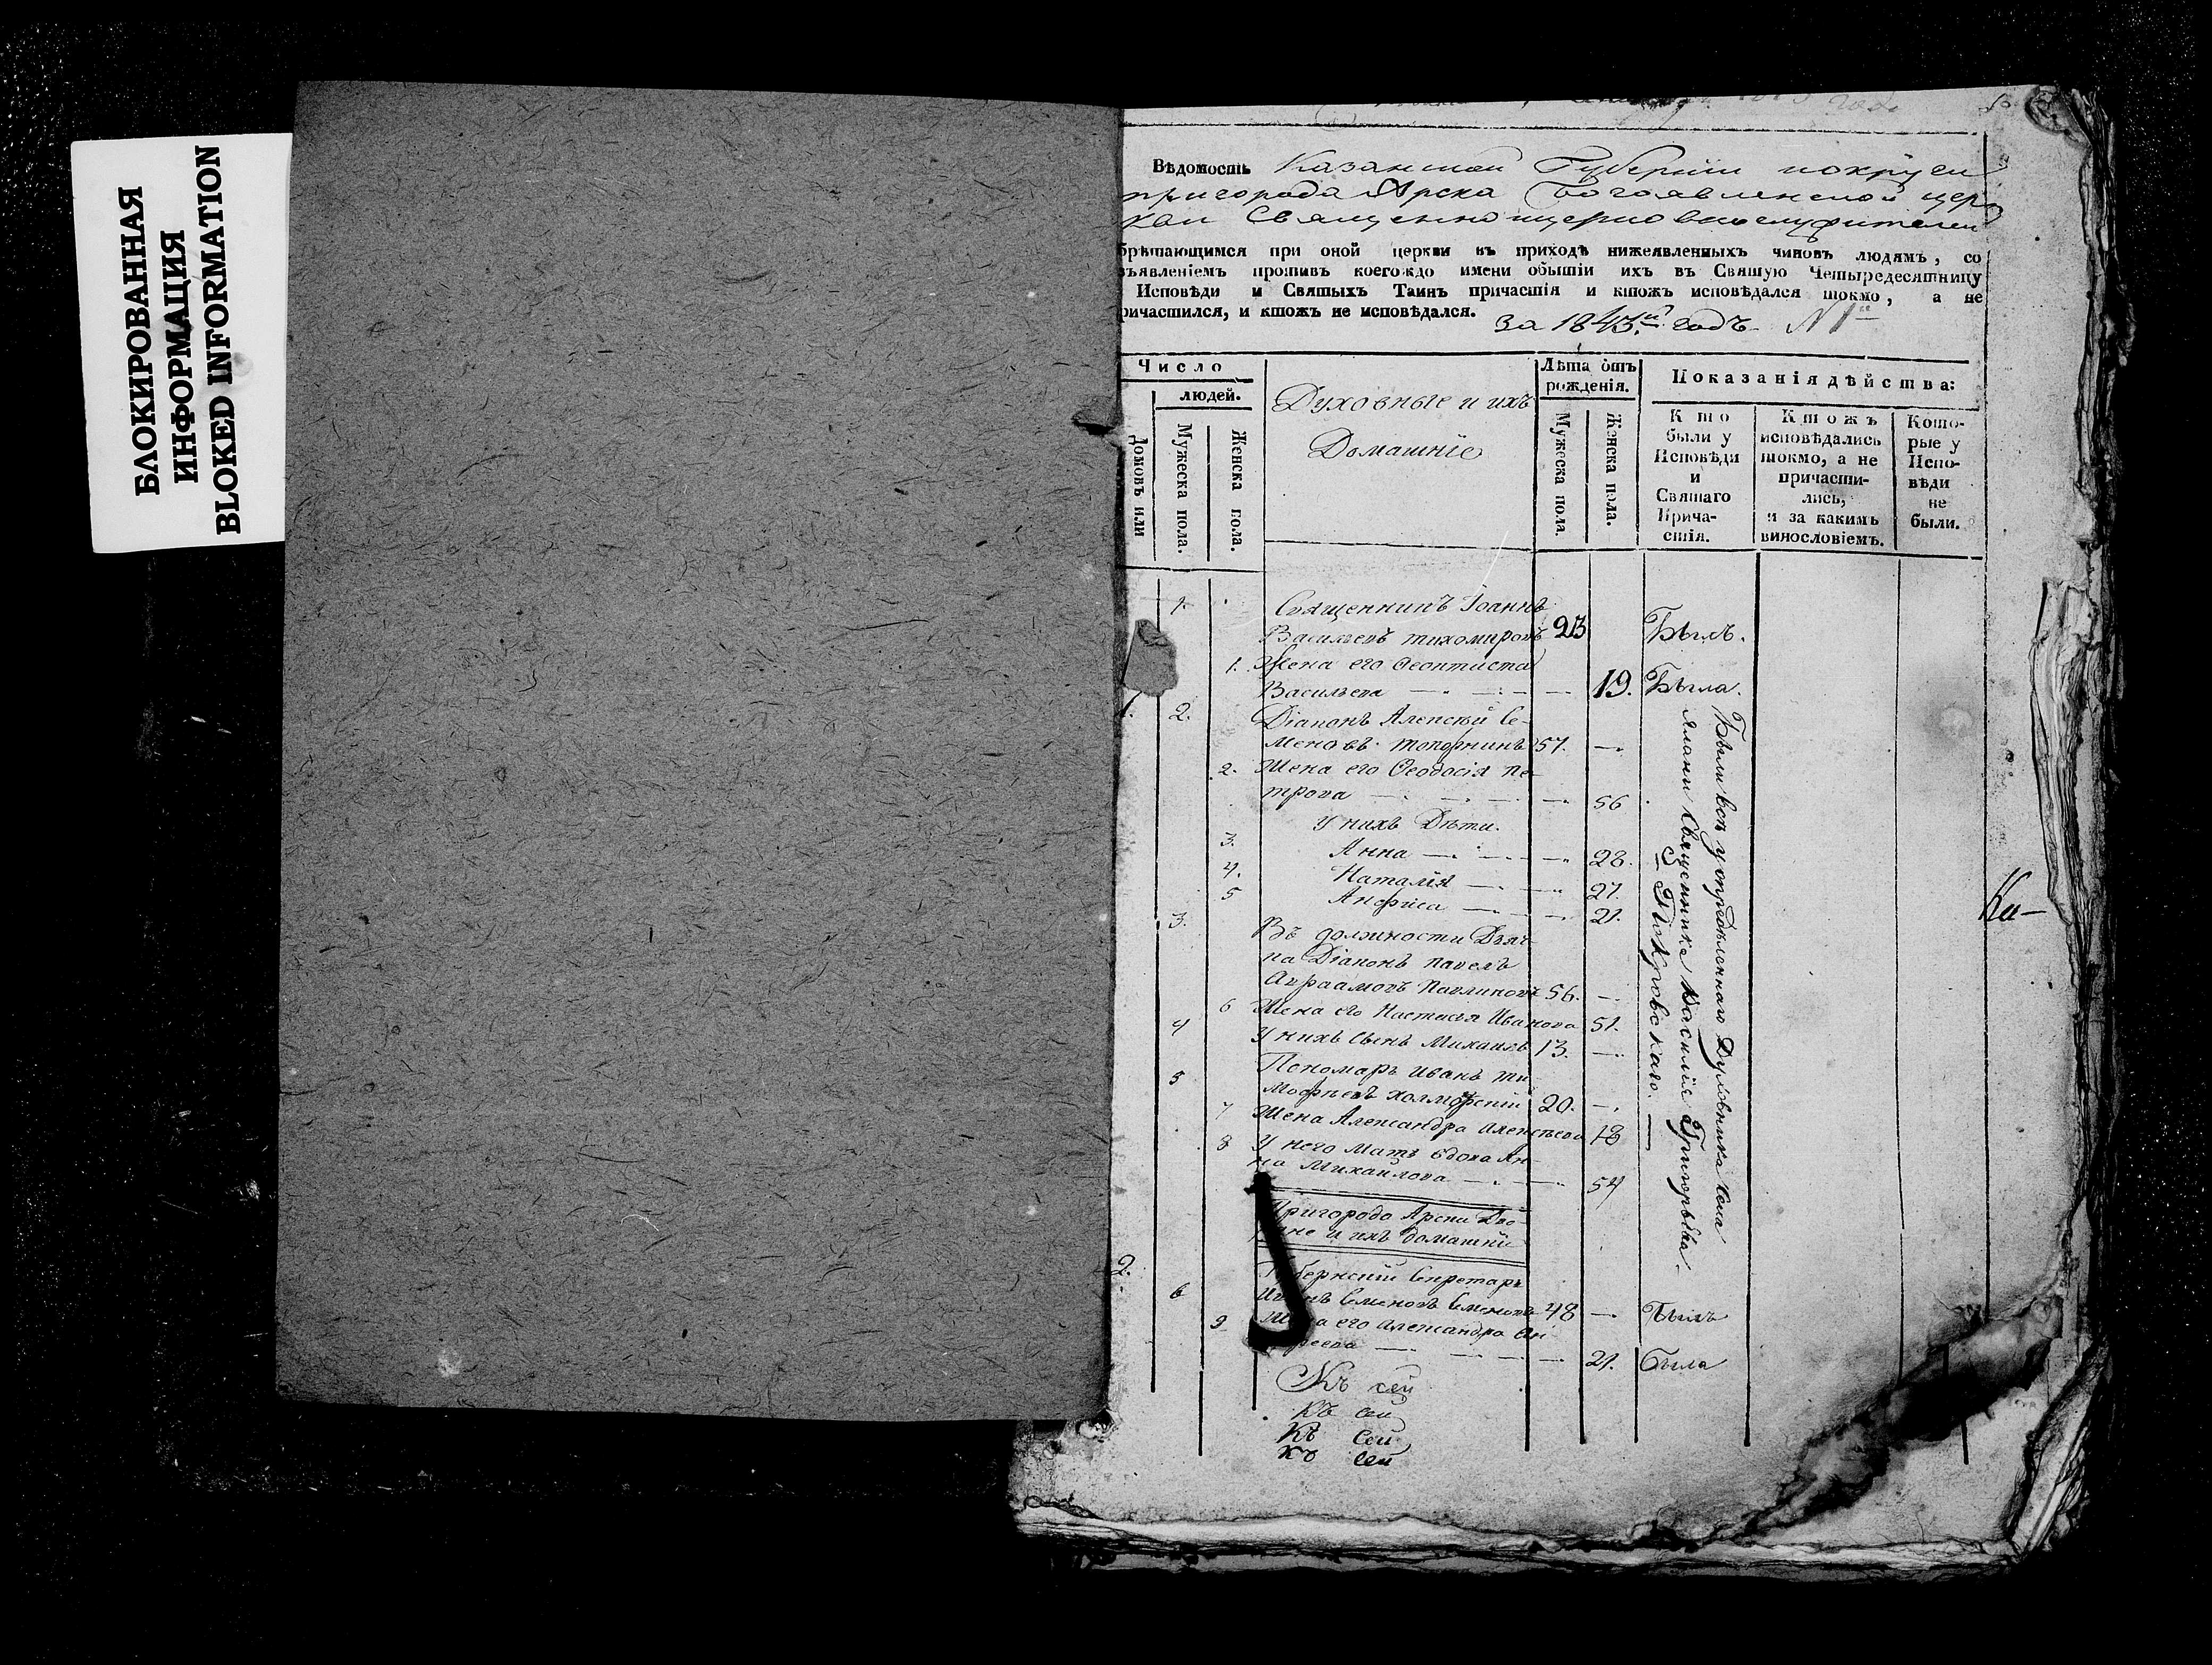 БЛОКИРОВАННАЯ
ИНФОРМАЦИЯ
BLOKED INFORMATION
Вѣдомость Казанской Губерніи
пригорода Арска Богоявленской цер
кви Священно и церковнослужителей
брѣтающимся при оной церкви въ приходѣ нижеявленныхъ чиновъ людямъ, со
зъявленіемъ противъ коегождо имени обытіи ихъ въ Святую Четыредесятницу
Исповѣди и Святыхъ Таинъ причастія и ктожъ исповѣдался токмо, а не
ричастился, и ктожъ не исповѣдался.
за 1843й годъ N 1
Число
людей.
Домовъ или
Мужеска пола.
Женска пола.
Духовные и ихъ
Домашніе
Лѣта отъ
рожденія.
Мужеска пола.
Женска пола.
Показанія дѣйства:
Кто
были у
Исповѣди
и
Святаго
Прича-
стія.
Ктожъ
исповѣдались
токмо, а не
причасти-
лись,
и за какимъ
винословіемъ.
Кото-
рые у
Испо-
вѣди
не
были.
1. Священникъ Іоаннъ
Васильевъ тихомировъ 23 Былъ.
1. Жена его Феоктиста
Васильева 19. Была.
1. 2. Діаконъ Алексѣй Се-
меновъ топорнинъ 57.
2. Жена его Феодосія Пе-
трова 56
У нихъ Дѣти.
3. Анна 28.
4. Наталія 27.
5 Анфиса 21.
3. Въ должности Дьяч-
ка Діаконъ Павелъ
Авраамовъ Павлиновъ 56.
6 Жена его Настасья Иванова 51.
4 У нихъ Сынъ Михаилъ 13.
5 Пономарь Иванъ Ти
мофѣевъ холмогскій 20.
7 Жена Александра Алексѣева 18
8 У него Мать вдова Ан-
на Михайлова 54
Были всѣ у опредѣленнаго Духовника Села
Священника Василія Григорьева
Покровскаго.
Ка-
Пригорода Арска Дво-
ряне и ихъ домашніи
2. Губернскій Секретарь
6 Иванъ Семеновъ Семеновъ 48 Былъ
9 Жена его Александра Ан
дреева 21. была
Къ сей
Къ сей
Къ Сей
Къ сей